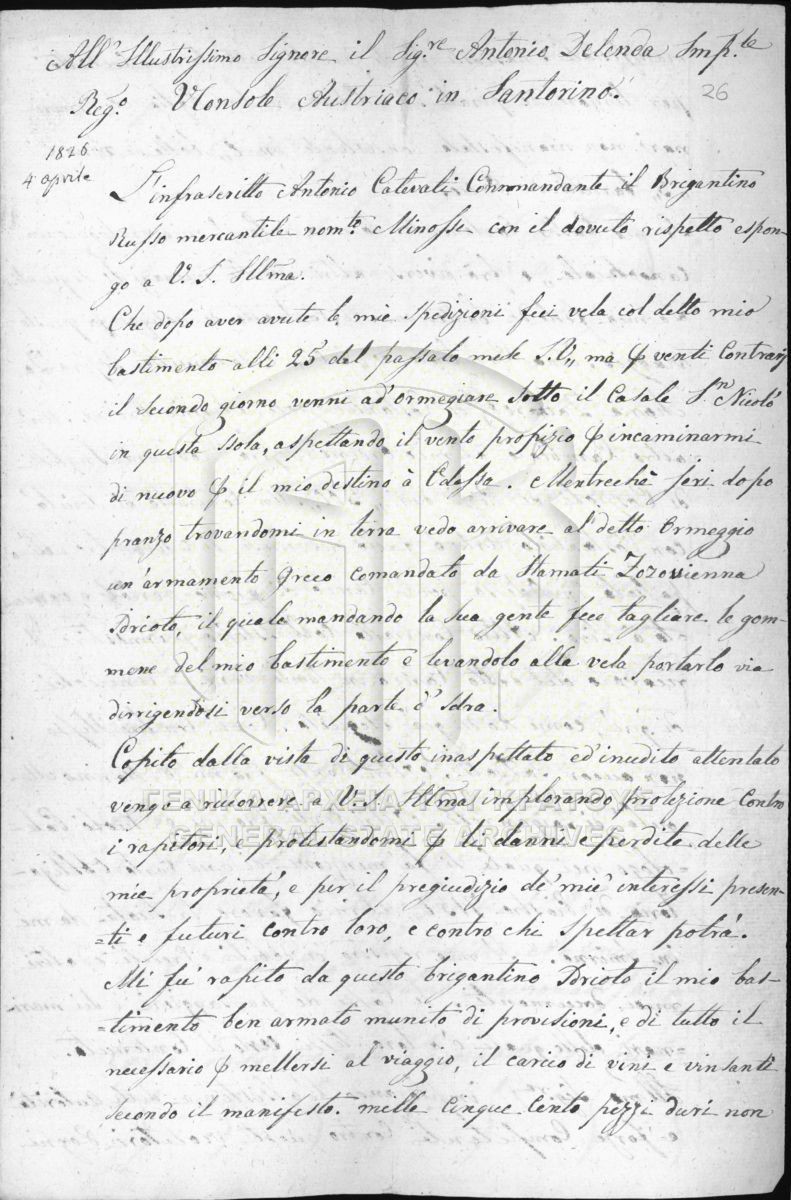 All' Illustrissimo Signore il Sig.re Antonio Delenda Imp.le
Reg.o V Console Austriaco in Santorino.
26
1826
4 aprile
L'infrascritto Antonio Catevati Commandante il Bregantino
Russo mercantile nom.to Minosse con il dovuto rispetto espon-
go a V. S. Illma.
Che dopo aver avute le mie spedizioni feci vela col detto mio
bastimento alli 25 del passato mese S.V., ma ꝑ venti contrarj
il secondo giorno venni ad' ormegiare sotto il Casale S.n Nicolò
in questa Isola, aspettando il vento propizio ꝑ incaminarmi
di nuovo ꝑ il mio destino à Odessa. Mentrechè jeri dopo
pranzo trovandomi in terra vedo arrivare al detto Ormeggio
un'armamento Greco comandato da Stamati Zozovienna
Idrioto, il quale mandando la sua gente fece tagliare le gom-
mene del mio bastimento e levandolo alla vela portarlo via
dirrigendosi verso la parte d' Idra.
Copito dalla vista di questo inaspettato ed' inudito attentato
vengo a riccorrere a V. S. Illma implorando protezione contro
i rapitori, e protestandomi ꝑ li danni e perdite delle
mie proprietà, e per il pregiudizio de' miei interessi presen-
=ti e futuri contro loro, e contro chi spettar potrà.
Mi fù rapito da questo brigantino Idrioto il mio bas-
=timento ben armato munito di provisioni, e di tutto il
necessario ꝑ mettersi al viaggio, il carico di vini e vinsanti
secondo il manifesto. mille cinque cento pezzi duri non
ΓΕΝΙΚΑ ΑΡΧΕΙΑ ΤΟΥ ΚΡΑΤΟΥΣ
GENERAL STATE ARCHIVES